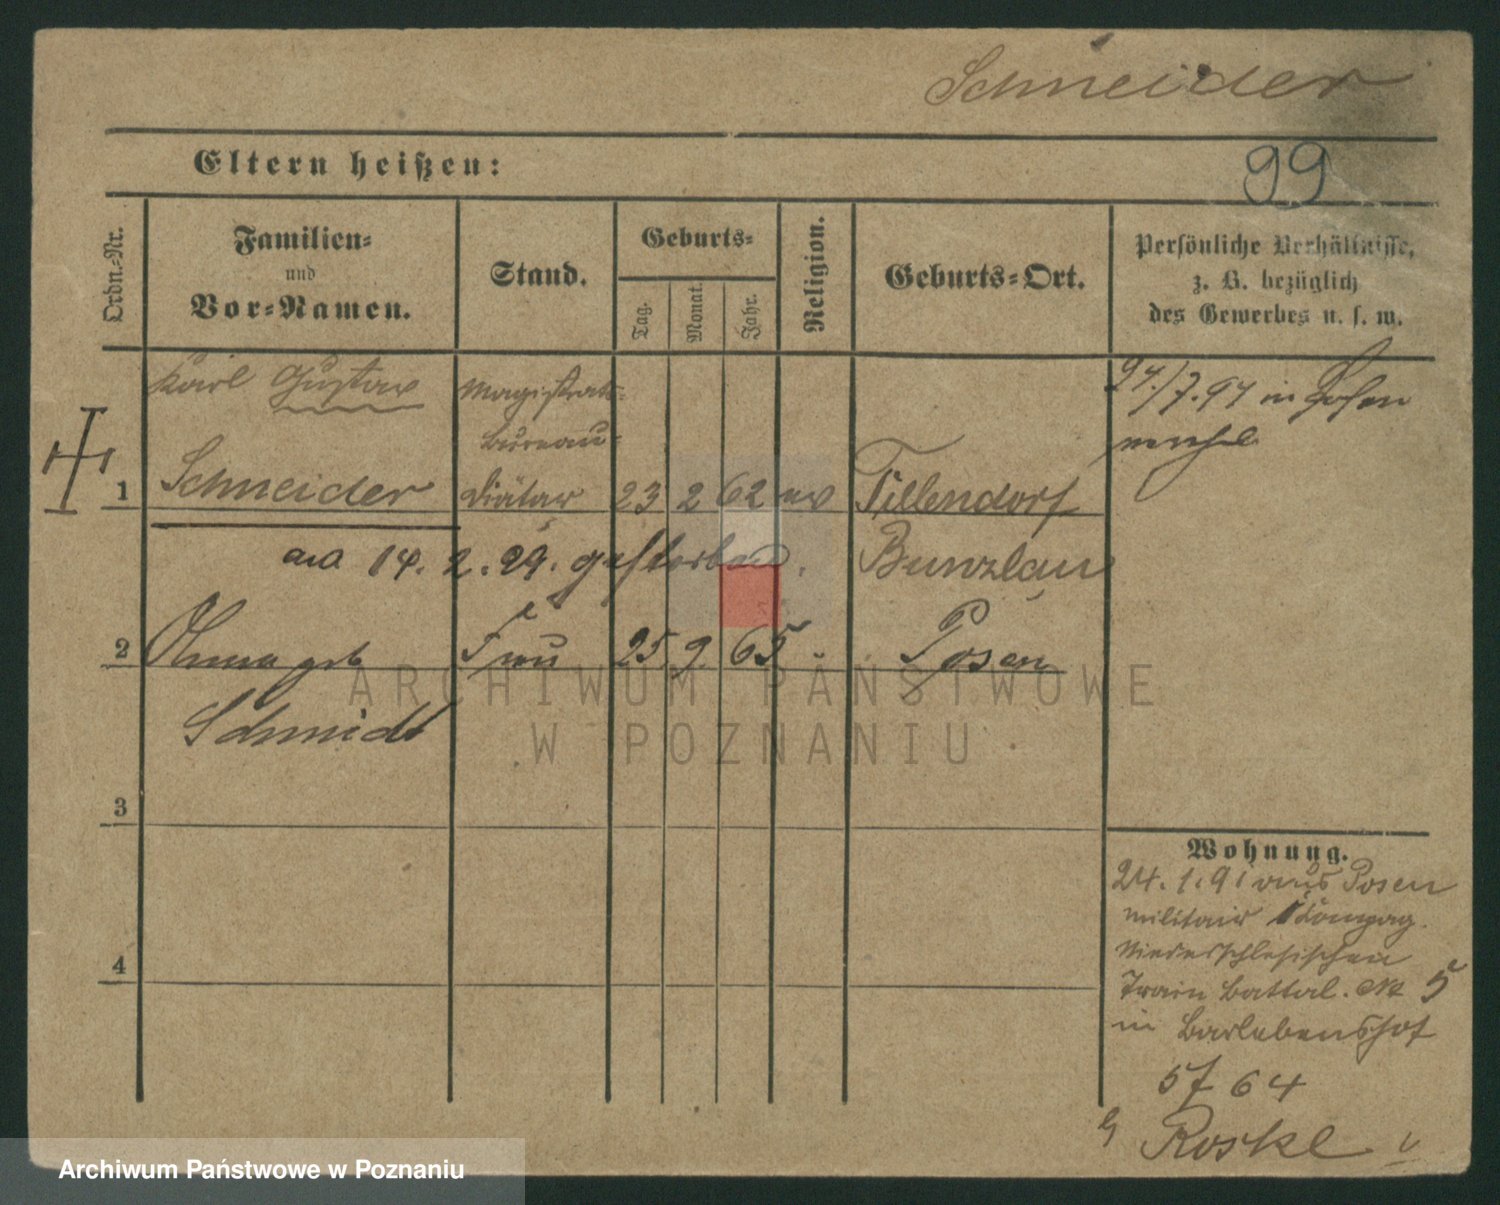 Schneider
Eltern heißen:
99
Ordn.-Nr.
Familien-
und
Vor-Namen.
Stand.
Geburts-
Tag.
Monat.
Jahr.
Religion.
Geburts-Ort.
Persönliche Verhältnisse,
z. B. bezüglich
des Gewerbes u. s. w.
Karl Gustav
Magistrats-
Bureau-
1 Schneider Diätar 23 2 62 ev Tillendorf
am 14. 2. 99. gestorben.
Bunzlau
2 Anna geb Frau 25. 9. 65 Posen
Schmidt
3
4
in Posen
Wohnung.
24. 1. 91 aus Posen
militair
Niederschlesischen
Train Battal. No 5
in Bartebenshof
57 64
Roskl
ARCHIWUM PAŃSTWOWE
W POZNANIU
Archiwum Państwowe w Poznaniu